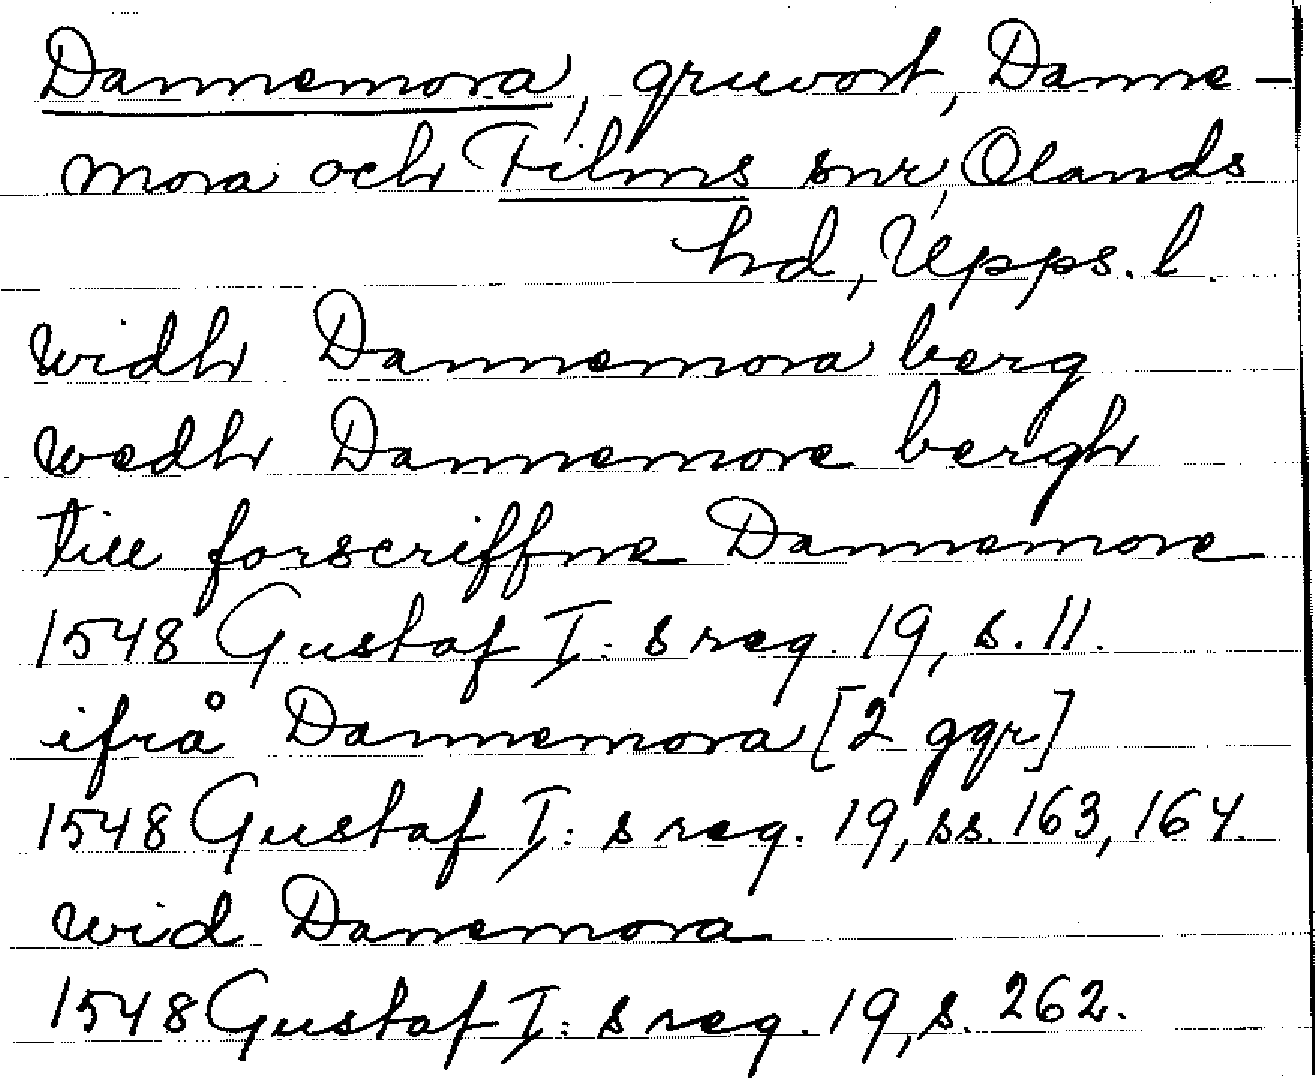 Dannemora, gruvort, Danne-
mora och Films snr, Olands
hd, Upps. l.
widh Dannemora berg
wedh Dannemore bergh
till forscriffne Dannemore
1548 Gustaf I:s reg. 19, s. 11.
ifrå Dannemora [2 ggr]
1548 Gustaf I:s reg. 19, ss. 163, 164.
wid Danemora
1548 Gustaf I:s reg. 19, s. 262.